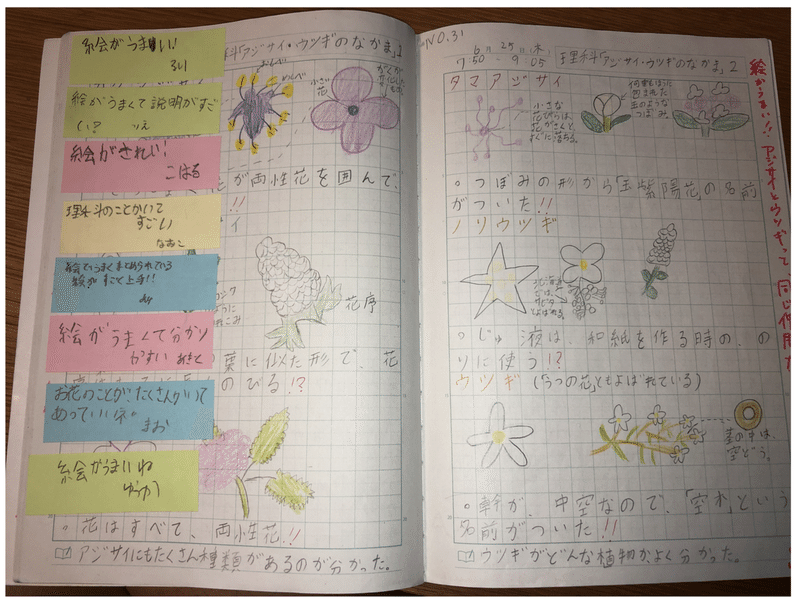 絵がうまい!
るい
絵がうまくて説明がすご
い?
りえ
絵がきれい!
こはる
理科のことかいて
すごい
なおこ
絵でうまくまとめられている
絵がすごく上手!!
絵がうまくて分かり
やすい あきと
お花のことが、たくさんかいて
あっていいネ。
まお
絵がうまいね
ゆうか
科「アジサイ・ウツギのなかま」1
おしべ
めしべ
小さい
花
が両性花を囲んで、
!!
イ
花序
葉に似た形で、花
のびる!?
○花はすべて、両性花!!
アジサイにもたくさん種類があるのが分かった。
NO.31
6月25日(木)
7:50-9:05
理科「アジサイ・ウツギのなかま」2
タマアジサイ
小さな
花びらは、
花がさくと
すぐに落ちる。
何重もほうに
包まれた
玉のような
つぼみ
○つぼみの形から「玉紫陽花」の名前
がついた!!
ノリウツギ
北海道
では、
サビタ
とよばれる。
○じゅ液は、和紙を作る時の、の
りに使う!?
ウツギ(「うつの花」ともよばれている)
茎の中は、
空どう。
○幹が、中空なので、「空木」という
名前がついた!!
ウツギがどんな植物か、よく分かった。
絵がうまい!!アジサイとウツギって、同じ仲間だ